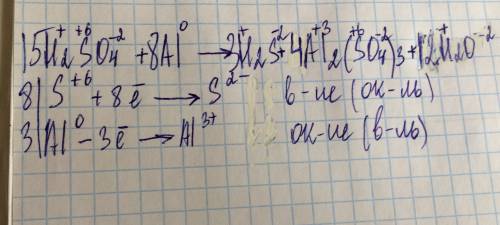 15H₂⁺S⁺⁶O₄⁻² + 8Al⁰ → 3H₂⁺S⁻² + 4Al₂⁺³(S⁺⁶O₄⁻²)₃ + 12H₂⁺O⁻²
8| S⁺⁶ + 8ē → S²⁻ в-ие (ок-ль)
3| Al⁰ - 3ē → Al³⁺ ок-ие (в-ль)